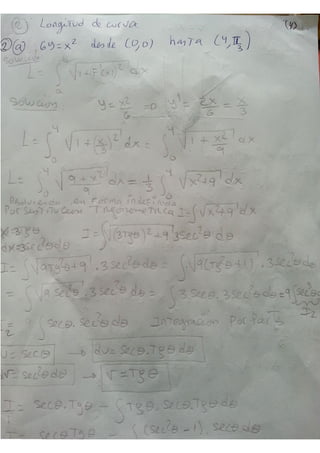 ② Longitud de curva (4)
2) a) 6y = x² desde (0,0) hasta (4, π/3)
Solución
L = ∫₀⁴ √(1+(F'(x))²) dx
Solución y = x²/6 => y' = 2x/6 = x/3
L = ∫₀⁴ √(1+(x/3)²) dx = ∫₀⁴ √(1+x²/9) dx
L = ∫₀⁴ √((9+x²)/9) dx = 1/3 ∫₀⁴ √(x²+9) dx
en Forma indefinida
Por Sustitucion Trigonometrica I = ∫√(x²+9) dx
x = 3Tgθ I = ∫√((3Tgθ)²+9) 3sec²θ dθ
dx = 3sec²θdθ
I = ∫√(9Tg²θ+9) . 3sec²θdθ = ∫√(9(Tg²θ+1)) . 3sec²θdθ
= ∫√(9sec²θ) . 3sec²θdθ = ∫3secθ . 3sec²θdθ = 9∫sec³θdθ
I₂
I₂ = ∫secθ . sec²θ dθ Integración Por Partes
u = secθ → du = secθ.Tgθ dθ
dv = sec²θdθ → v = Tgθ
I = secθ.Tgθ − ∫Tgθ. secθ.Tgθ dθ
I = secθ Tgθ − ∫(sec²θ − 1) . secθ dθ